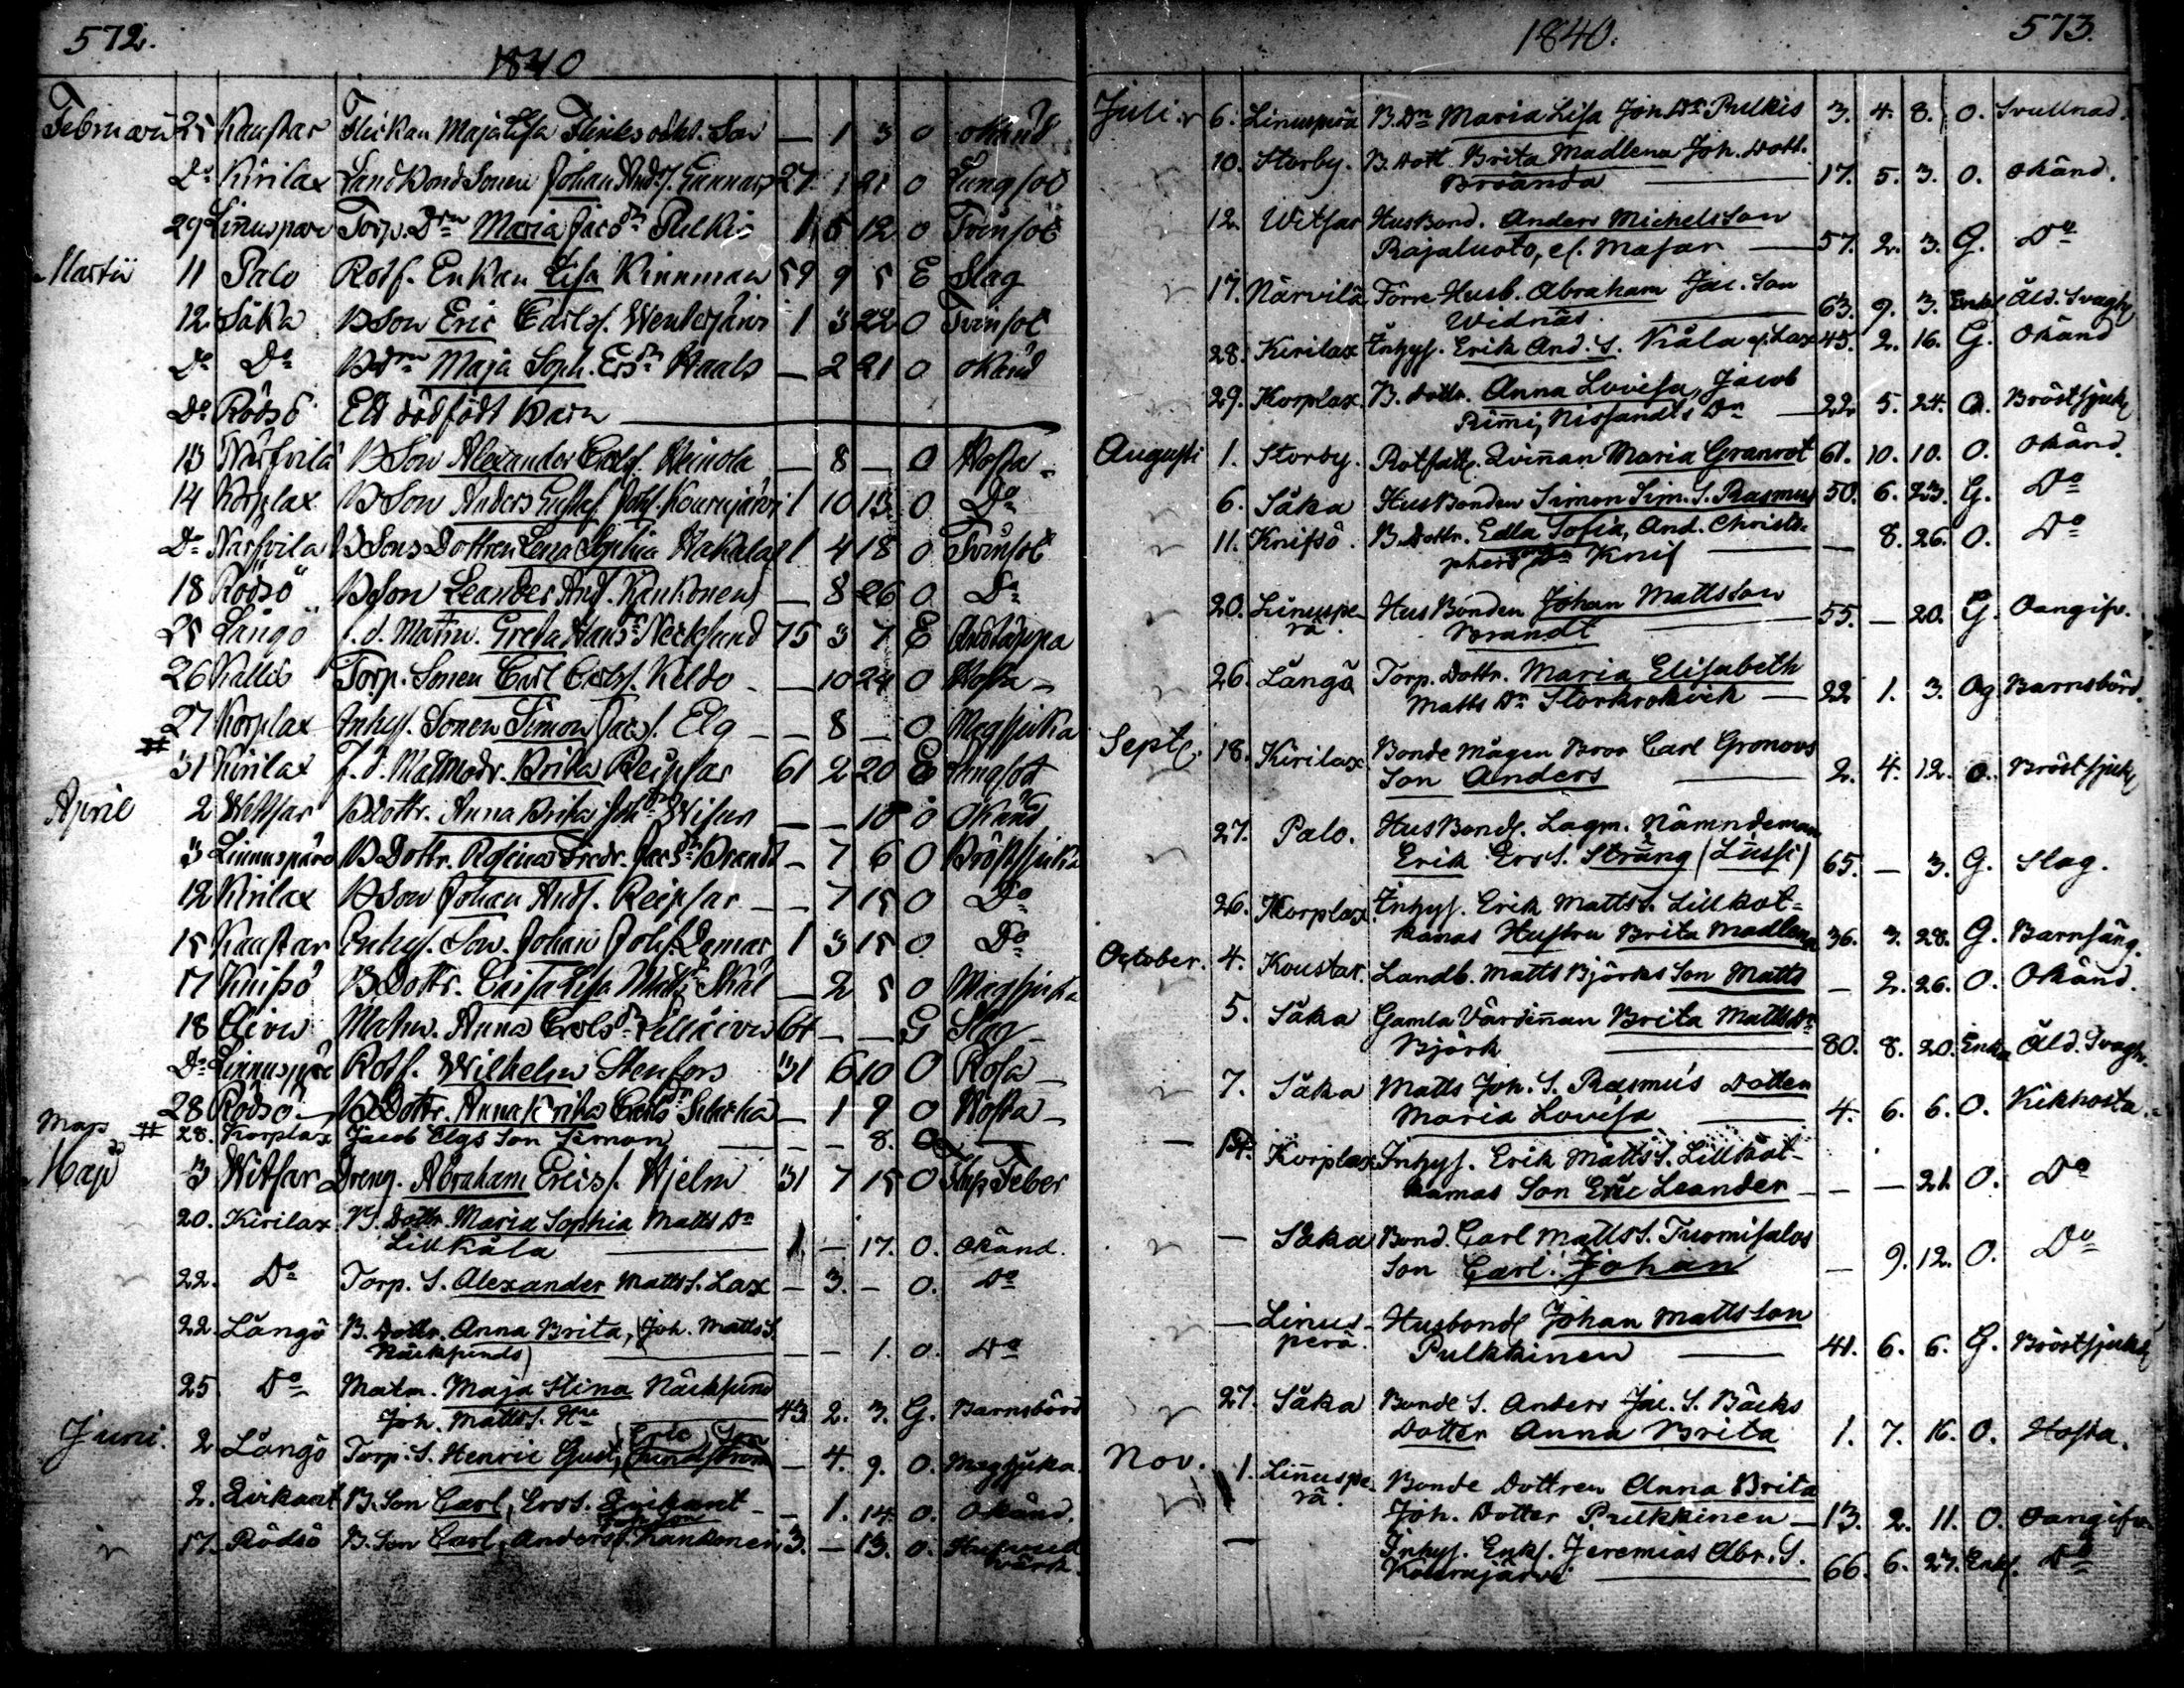 572.
1840
Februarii 25 Kaustar Flickan Maja Lisa Flinks odkt. Son — 1 3 O Okänd
Do Kirilax Landbond Sonen Johan And. S. Gunnar 27 1 21 O Lungsot
29 Linnuspärä Torp. Drn Maria Jacs Dr Pulkis 1 5 12 O Tvinsot
Martii 11 Palo Rotf. Enkan Lisa Kinnman 59 9 5 E Slag
12 Såka B Son Eric Carlsf. Wentojärvi 1 3 22 O Tvinsot
Do Do B Drn Maja Soph. Ers Dr Haals — 2 21 O Okänd
Do Rödsö Ett dödfödt Barn
13 Närfvilä B Son Alexander Carlsf. Heinola — 8 — O Hosta
14 Korplax B Son Anders Gustaf Johsf. Kourujärvi 1 10 13 O Do
Do Närfvila B Sons Dottren Lena Sophia Hakala 1 4 18 O Tvinsot
18 Rödsö B Son Leander Andf. Kankonen — 8 26 O Do
25 Långö f. d. Matm. Greta Hans Dr Neckfund 75 3 7 E Andtäppa
26 Kallis Torp. Sonen Carl Carlsf. Keldo — 10 24 O Hosta
27 Korplax Inhys. Sonen Simon Jacs f. Elg — 8 — O Magsjuka
# 31 Kirilax f. d. Matmodr. Brita Reipsar 61 2 20 E Lungsot
April 2 Witsar B Dottr. Anna Brita Joh. Dr — — 10 O Okänd
3 Linnuspärä B Dottr. Rosina Fredr. Jacs Dr Brandt — 7 6 O Bröstsjuka
12 Kirilax B Son Johan Andf. Reipsar — 7 15 O Do
15 Kaustar Inhys. Son. Johan Johsf. Damar 1 3 15 O Do
17 Knifsö B Dottr. Caisa Lisa Matts Dr Skäl — 2 5 O Magsjuka
18 Matm. Anna Carls Dr 64 — — G Slag
Do Linnuspärä Rotf. Wilhelm Stenfors 31 6 10 O Rosa
28 Rödsö B Dottr. Anna Brita Carls Dr — 1 9 O Hosta
Mars # 28. Korplax Jacob Elgs Son Simon — — 8. O
Maji 3 Witsar Dreng. Abraham Ericsf. Hjelm 31 7 15 O Feber
20. Kirilax B. Dottr. Maria Sophia Matts Dr
Lillkåla 1. — 17. O. Okänd.
22. Do Torp. S. Alexander Matts S. Lax — 3. — O. Do
22. Långö B. Dottr. Anna Brita, (Joh. Matts S.
Näckfunds) — — 1. O. Do
25. Do Matm. Maja Stina Näckfund
Joh. Matts S. Hu 43. 2. 3. G. Barnsbörd
(Eric Son
Juni. 2 Långö Torp. S. Henric Gust, Lundström — 4. 9. O. Magsjuka.
2. Qvikant B. Son Carl, Ers S. Qvikant — 1. 14. O. Okänd.
17. Rödsö B. Son Carl, Anders f. Kankonen 3. — 13. O. Hufvud
värk.
1840.
573.
Juli. 6. Linuspärä B. Dn Maria Lisa Joh. Dr Pulkis 3. 4. 8. O. Svullnad.
10. Storby. B. Dott Brita Madlena Joh. Dott.
Broända 17. 5. 3. O. Okänd.
12. Witsar HusBond. Anders Michelsson
Rajaluoto, el. Masar 57. 2. 3. G. Do
17. Närvilä Förre Husb. Abraham Jac. Son
Widnäs. 63. 9. 3. Enkl Åld. Svaghet
28. Kirilax Inhys. Erik And. S. Kåla el. Lax 45. 2. 16. G. Okänd
29. Korplax. B. Dottr. Anna Lovisa, Jacob
Rimi, Nissandts Dr 22 5. 24. O. Bröstsjuk
Augusti 1. Storby. Rotfatt. Qvinnan Maria Granrot 61. 10. 10. O. Okänd.
6. Såka HusBonden Simon Sim. S. Rasmus 50. 6. 23. G. Do
11. Knifsö. B. Dottr. Edla Sofia, And. Christo-
phersson Dr Knif — 8. 26. O. Do
20. Linuspe-
rä. HusBonden Johan Mattsson
Brandt 55. — 20. G. Oangifv.
26. Långö Torp. Dottr. Maria Elisabeth
Matts Dr Storkrokvik 22 1. 3. Og Barnsbörd.
Septe. 18. Kirilax Bonde Mågen Bror Carl Gronows
Son Anders 2. 4. 12. O. Bröstsjuk
27. Palo. HusBond. Lagm. Nämndeman
Erik Ers S. Sträng (Lussi) 65. — 3. G. Slag.
26. Korplax. Inhys. Erik Matts S. Lillkot-
kamas Hustru Brita Madlena 36. 3. 28. G. Barnsäng.
October. 4. Koustar. Landb. Matts Björks Son Matts — 2. 26. O. Okänd.
5. Såka Gamla Värdinnan Brita Matts Dr
Björk 80. 8. 20. Enka Åld. Svagh.
7. Såka Matts Joh. S. Rasmus Dotter
Maria Lovisa 4. 6. 6. O. Kikhosta.
— 14. Korplax Inhys. Erik Matts S. Lillkot-
kamas Son Eric Leander — — 21. O. Do
— Såka Bond. Carl Matts S. Tuomisalos
Son Carl Johan — 9. 12. O. Do
— Linus-
perä. Husbond Johan Mattsson
Pulkkinen 41. 6. 6. G. Bröstsjuk
27. Såka Bonde S. Anders Jac. S. Bäcks
Dotter Anna Brita 1. 7. 16. O. Hosta.
Nov. 1. Linnuspe-
rä. Bonde Dottren Anna Brita
Joh. Dotter Pulkkinen 13. 2. 11. O. Oangifv.
— Inhys. Enkl. Jeremias Abr. S.
Kourujärvi 66. 6. 27. Enkl. Do